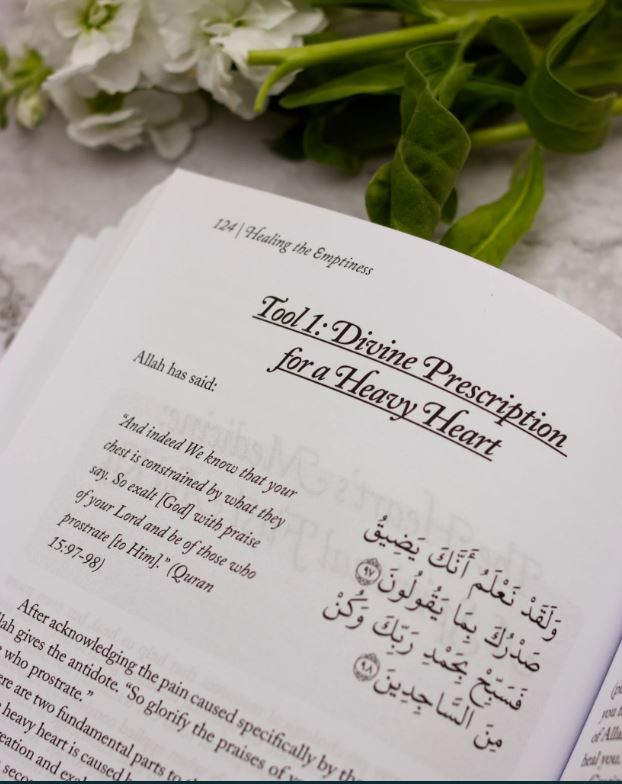 124 | Healing the Emptiness
Tool 1: Divine Prescription
for a Heavy Heart
Allah has said:
"And indeed We know that your
chest is constrained by what they
say. So exalt [God] with praise
of your Lord and be of those who
prostrate [to Him]." (Quran
15:97-98)
وَلَقَدْ نَعْلَمُ أَنَّكَ يَضِيقُ
صَدْرُكَ بِمَا يَقُولُونَ ﴿٩٧﴾
فَسَبِّحْ بِحَمْدِ رَبِّكَ وَكُنْ
مِنَ السَّاجِدِينَ ﴿٩٨﴾
After acknowledging the pain caused specifically by the
gives the antidote. "So glorify the praises of
who prostrate."
are two fundamental parts to
heavy heart is caused
and
(p
you
of Alla
heal you.